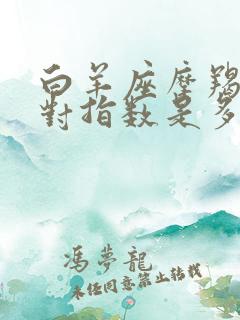 白羊座摩羯
對指数是多
馮夢龍
未经同意禁止转载